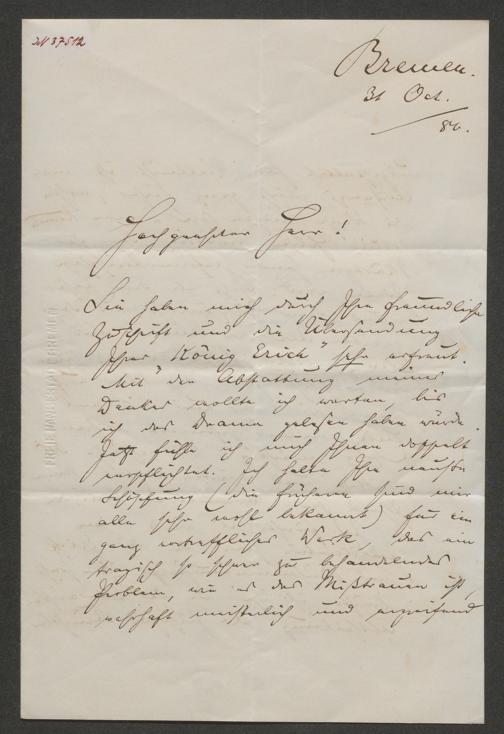 IN 37512
Bremen.
31 Oct.
86.
Hochgeehrter Herr!
Sie haben mich durch Ihre freundliche
Zuschrift und die Übersendung
Ihres „König Erich" sehr erfreut.
Mit der Abstattung meines
Dankes wollte ich warten, bis
ich das Drama gelesen haben würde.
Jetzt fühle ich mich Ihnen doppelt
verpflichtet. Ich halte Ihre neueste
Schöpfung (die früheren sind mir
alle sehr wohl bekannt) für ein
ganz vortreffliches Werk, das ein
tragisch so schwer zu behandelndes
Problem, wie es das Mißtrauen ist,
wahrhaft meisterlich und ergreifend